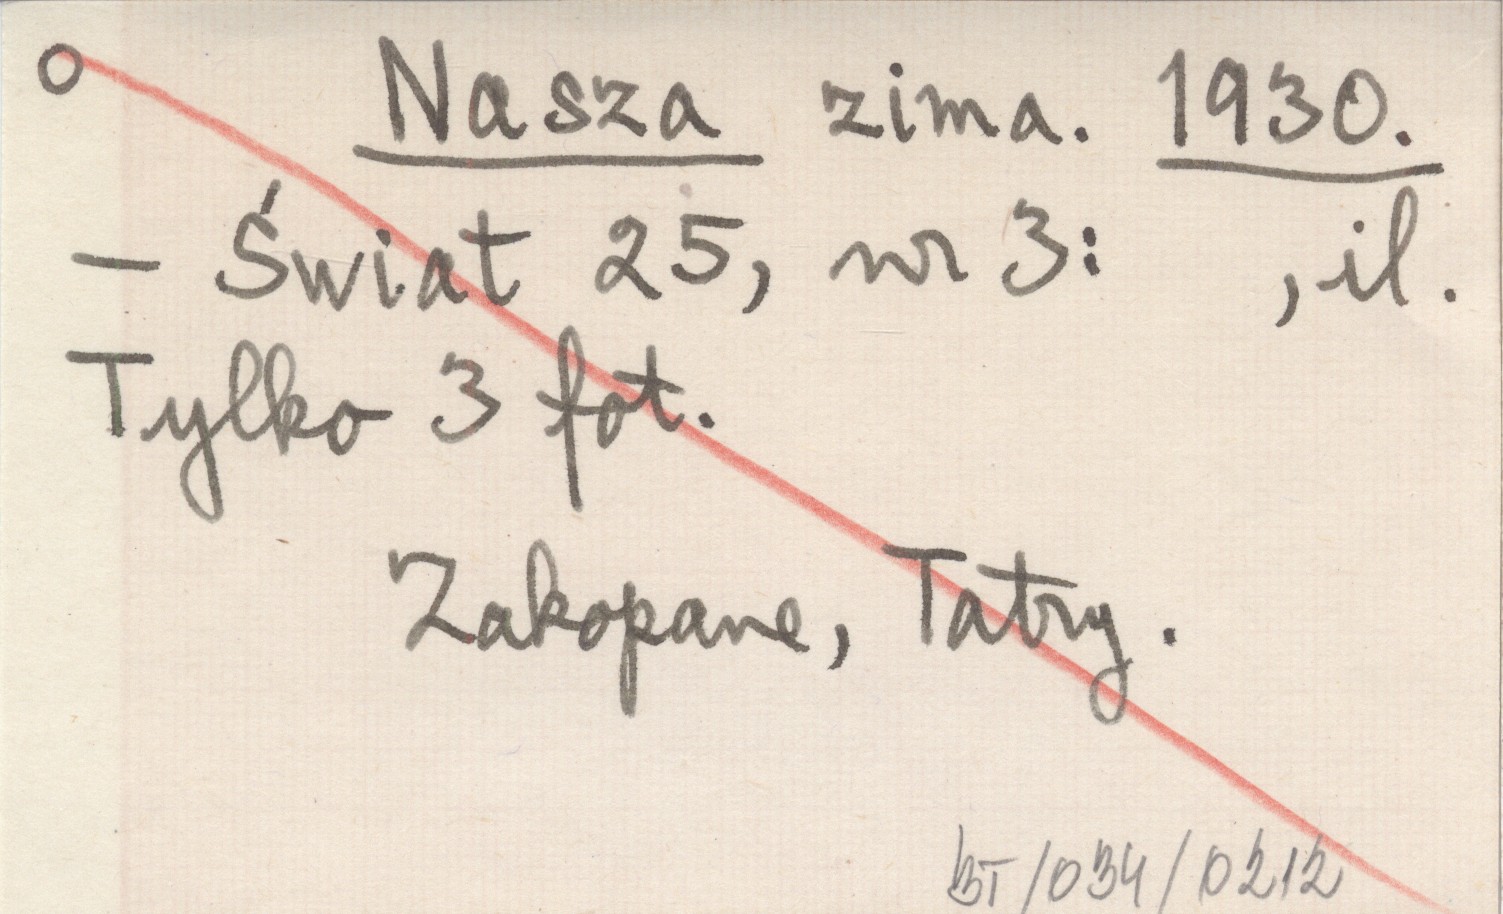 o Nasza zima. 1930.
– Świat 25, nr 3: , il.
Tylko 3 fot.
Zakopane, Tatry.
BT/034/0212